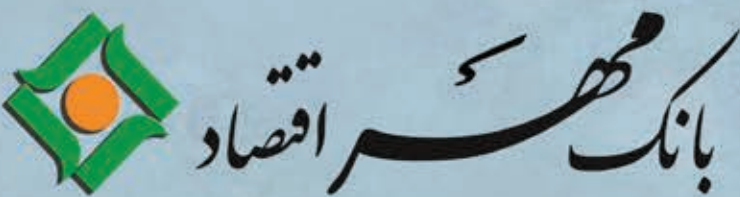 بانک مهر اقتصاد